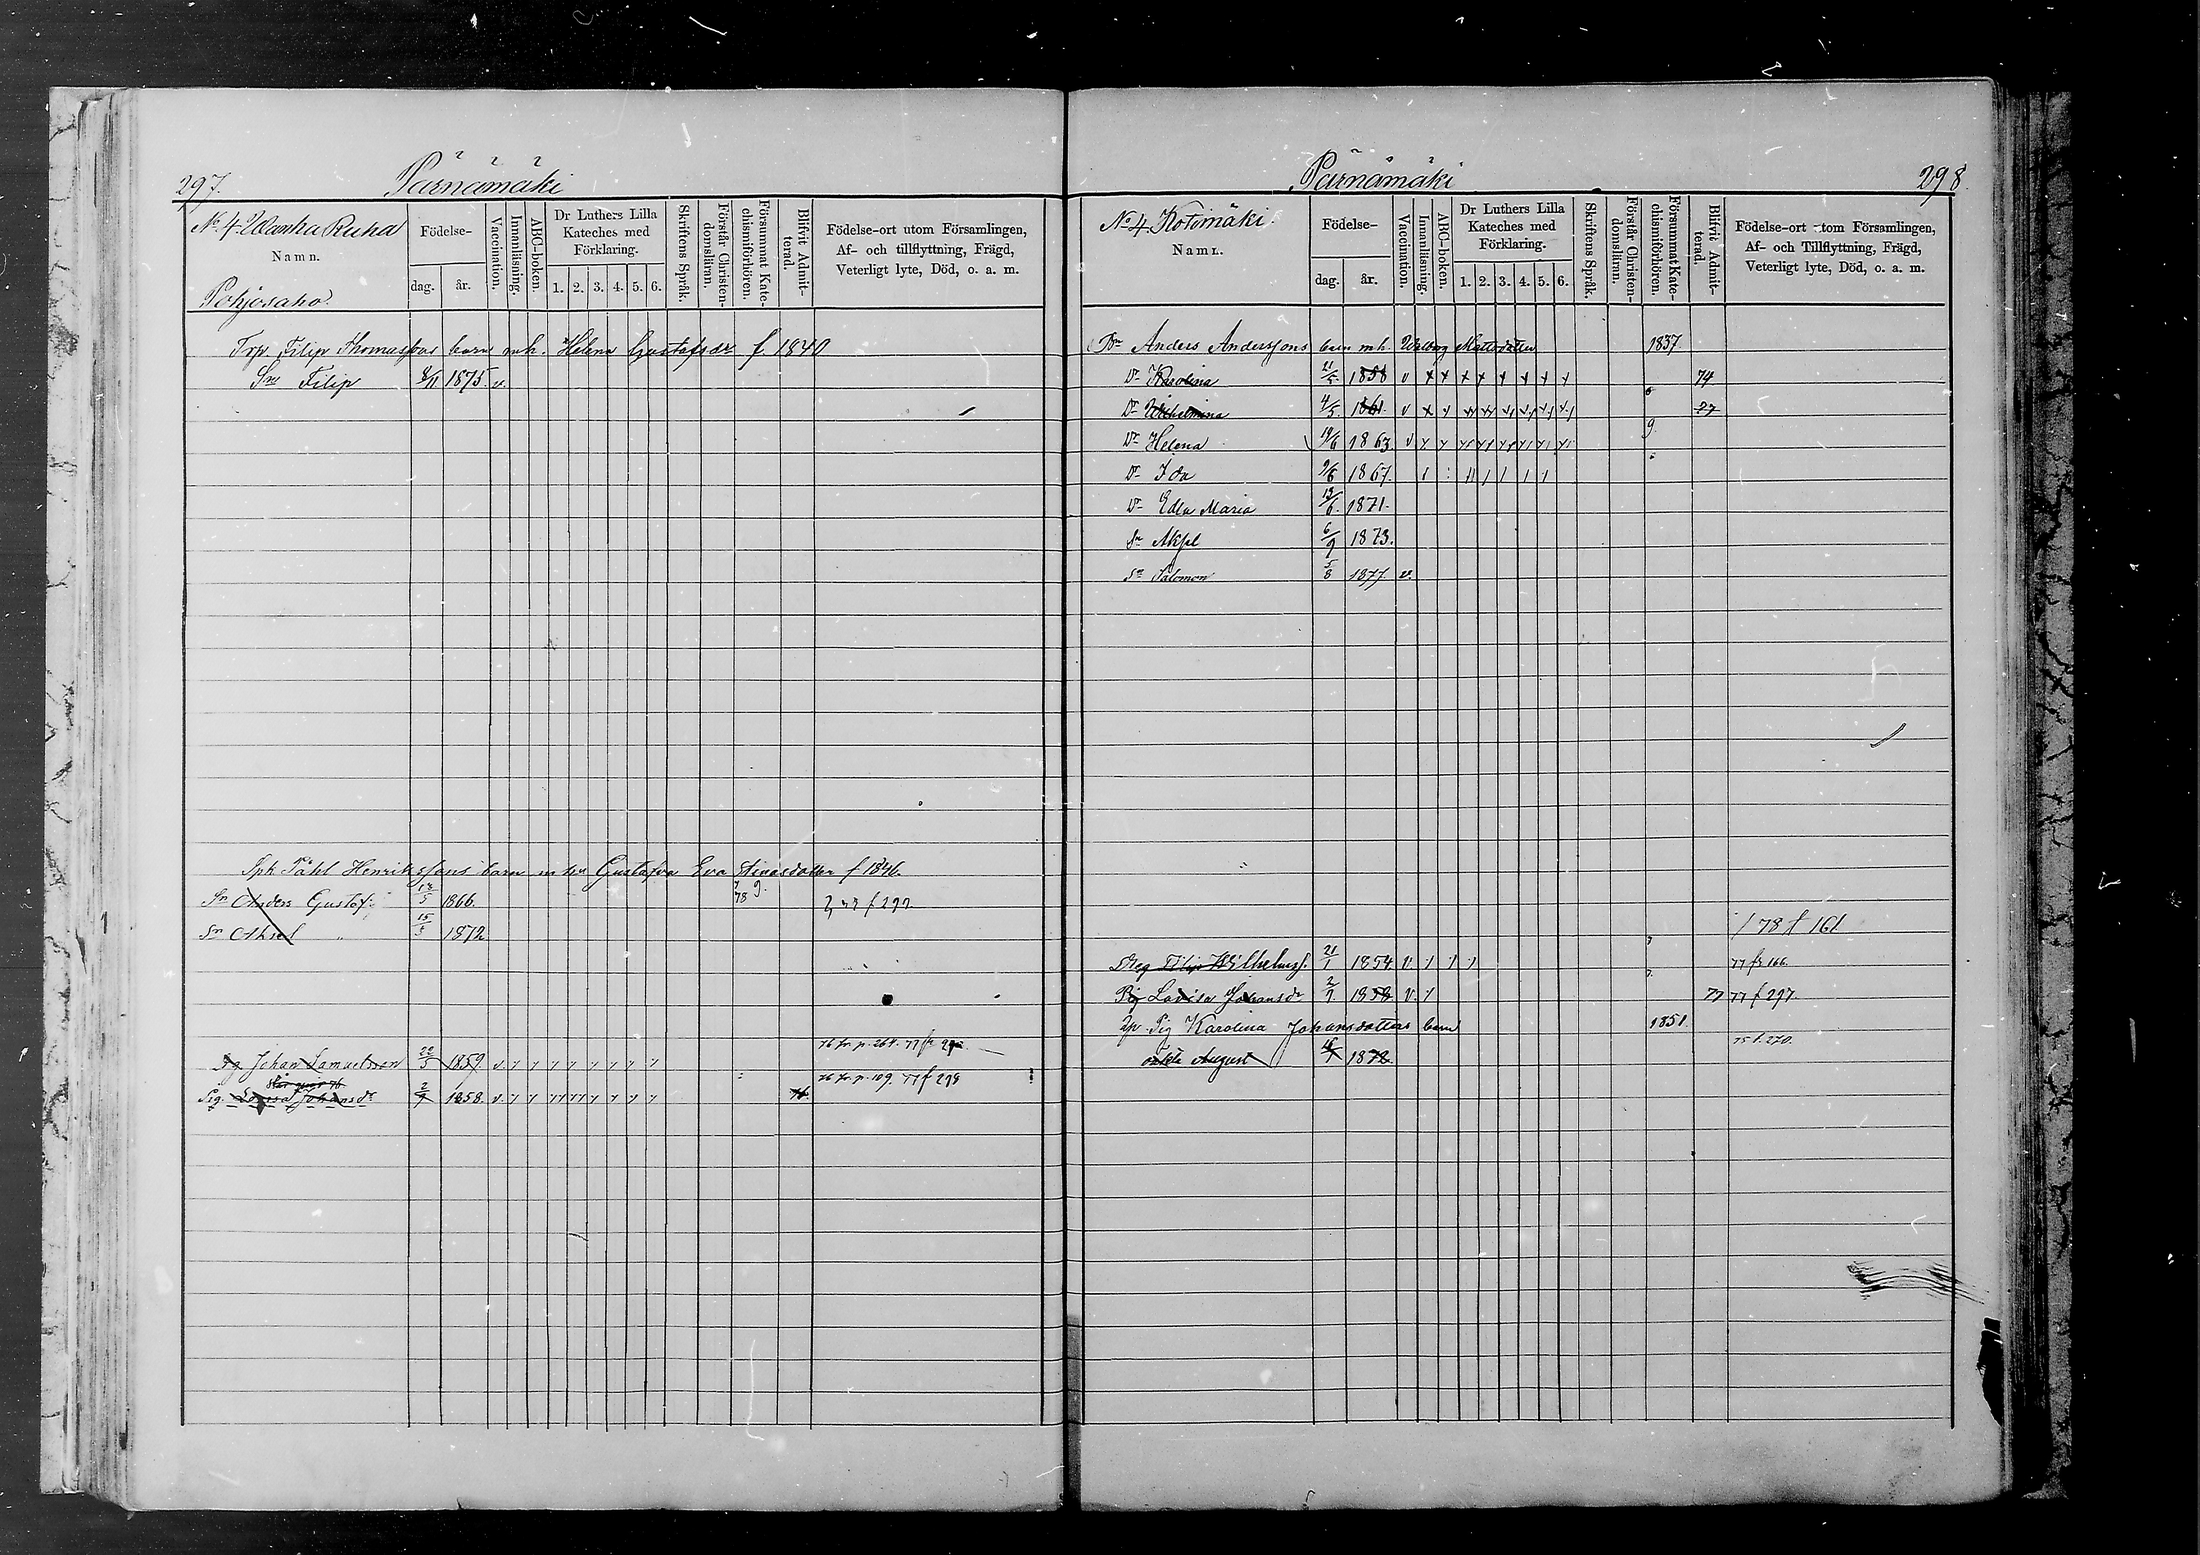 297.
Pärnämäki
No 4 Wanha Ruha
Namn.
Pohjosaho.
Födelse-
dag.
år.
Vaccination.
Innanläsning.
ABC-boken.
Dr Luthers Lilla
Kateches med
Förklaring.
1. 2. 3. 4. 5. 6.
Skriftens Språk.
Förstår Christen-
domsläran.
Försummat Kate-
chismiförhören.
Blifvit Admit-
terad.
Födelse-ort utom Församlingen,
Af- och tillflyttning, Frägd,
Veterligt lyte, Död, o. a. m.
Trp. Filip Thomassons barn m.h. Helena Gustafsdr f. 1840
Sn Filip 1875 v.
Spk Påhl Henrikssons barn m hu Gustafva Eva Stinasdotter f 1846.
Sn Anders Gustaf 1866. f 297
Sn Aksel 15/5 1872
76 fr. p. 264. 77 f
Dg Johan Samuelsson 22/5 1859. v. y y y y y y y y
76 fr. p. 109. 77 f 298
står qvar 76
Pig. Lovisa Johansdr 2/9 1858. v. y y yy yy y y y y 76.
298.
Pärnämäki
No 4 Kotomäki
Namn.
Födelse-
dag.
år.
Vaccination.
Innanläsning.
ABC-boken.
Dr Luthers Lilla
Kateches med
Förklaring.
1. 2. 3. 4. 5. 6.
Skriftens Språk.
Förstår Christen-
domsläran.
Försummat Kate-
chismiförhören.
Blifvit Admit-
terad.
Födelse-ort utom Församlingen,
Af- och Tillflyttning, Frägd,
Veterligt lyte, Död, o. a. m.
Bn Anders Anderssons barn m.h. Walborg Mattsdotter 1837
Dr Karolina 21/5 1858 v x x x x x x x x 74
Dr Wilhelmina 4/5 1861. v 77
Dr Helena 19/6 1863. v 9
Dr Ida 9/6 1867.
Dr Edla Maria 13/6. 1871.
Sn Aksel 6/9 1873.
Sn Salomon 5/8 1877 v.
78 f 161
Dreg Filip Wilhelmss. 21/1 1854. v. 77 fr 166.
Pig Lovisa Johansdr 2/9 1858 v. y 77 77 f 297.
Pig Karolina Johansdotters barn 1851
75 f. 270.
oäkta August 1872.